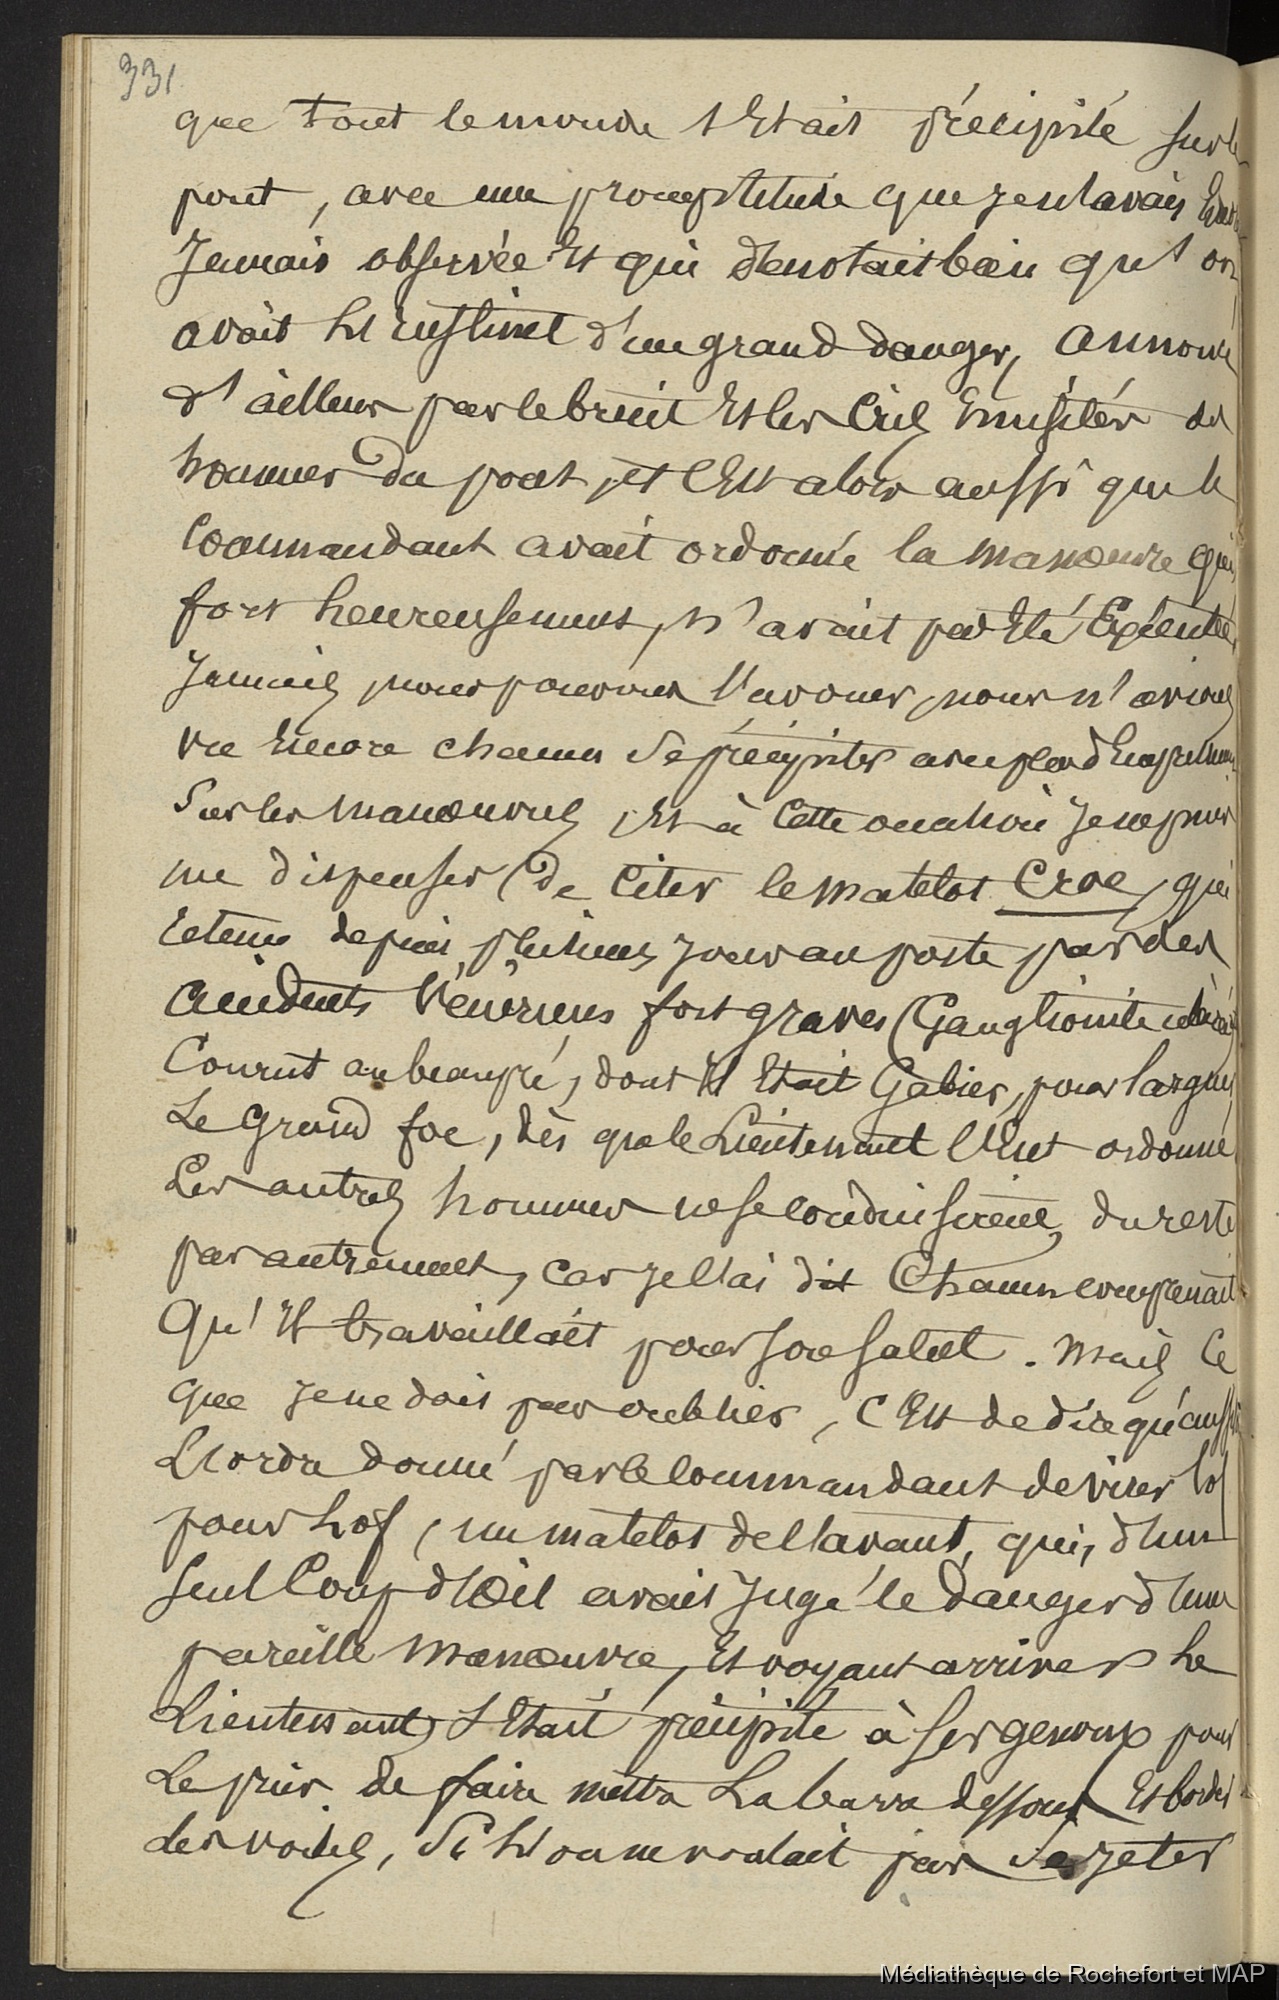 331
que tout le monde s'était précipité sur le
pont, avec une promptitude que je n'avais encore
Jamais observée et qui dénotait bien qu'on
avait l'instinct d'un grand danger, annoncé
d'ailleurs par le bruit et les cris inusités des
hommes du pont, et c'est alors aussi que le
Commandant avait ordonné la manœuvre qui
fort heureusement, n'avait pas été Exécutée
Jamais, nous pouvons l'avouer, nous n'avions
vu encore chacun se précipiter avec plus d'empressement
Sur les manœuvres, et à cette occasion je ne puis
me dispenser de citer le matelot Croc, qui
retenu depuis plusieurs jours au poste par des
accidents vénériens fort graves (Ganglionite ulcérée)
Courut au beaupré, dont il était Gabier, pour larguer
Le Grand foc, dès que le Lieutenant l'eut ordonné
Les autres hommes ne se conduisirent, du reste
pas autrement, car je l'ai dit Chacun comprenait
Qu'il travaillait pour son salut. Mais ce
que je ne dois pas oublier, c'est de dire qu'aussitôt
L'ordre donné par le Commandant de virer lof
pour lof, un matelot de l'avant, qui, d'un
seul Coup d'Œil avait jugé le danger d'une
pareille manœuvre, et voyant arriver le
Lieutenant, s'était précipité à ses genoux pour
Le prier de faire mettre La barre dessous et border
les voiles, si l'on ne voulait pas se jeter
Médiathèque de Rochefort et MAP